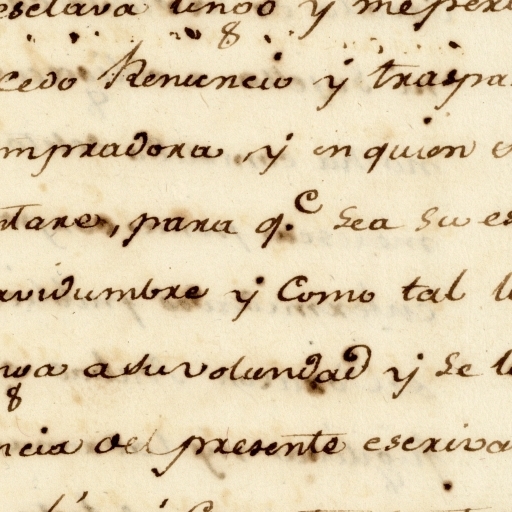 esclava tengo y me per
cedo Renuncio y traspa
mpradora, y en quien
tare, para q.e sea su es
rvidumbre y Como tal l
a a su voluntad y se l
ncia del presente escriva